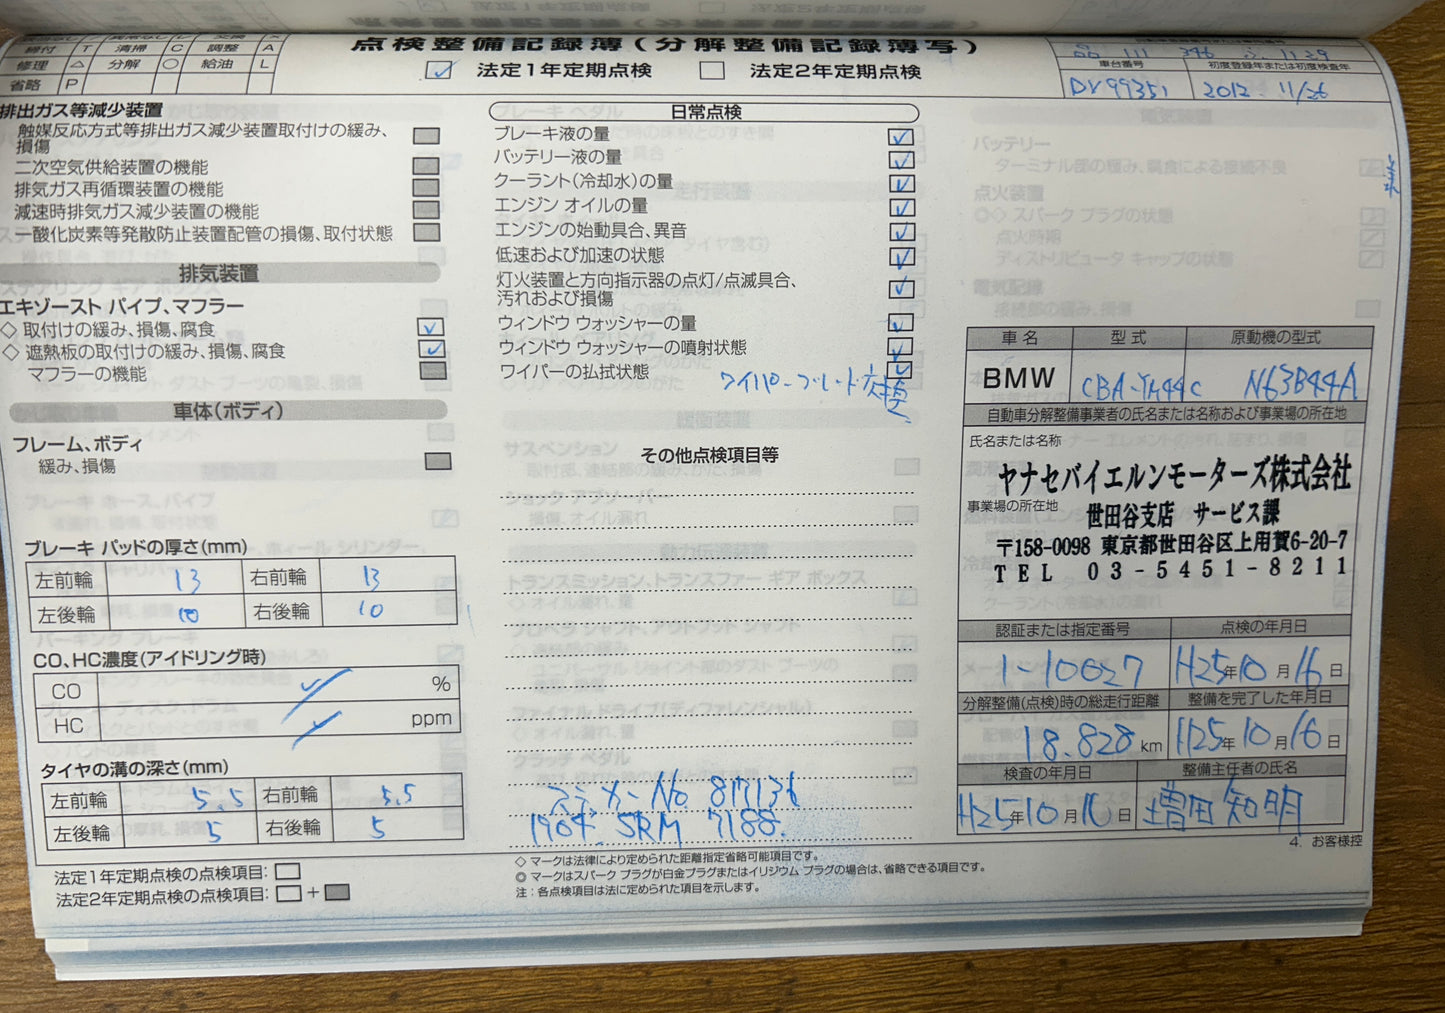 点検整備記録簿(分解整備記録簿写)
締付 T 清掃 C 調整 A
修理 △ 分解 ○ 給油 L
省略 P
法定1年定期点検 法定2年定期点検
車台番号 初度登録年または初度検査年
DV99351 2012. 11/26
排出ガス等減少装置
触媒反応方式等排出ガス減少装置取付けの緩み、
損傷
二次空気供給装置の機能
排気ガス再循環装置の機能
減速時排気ガス減少装置の機能
一酸化炭素等発散防止装置配管の損傷、取付状態
排気装置
エキゾースト パイプ、マフラー
◇ 取付けの緩み、損傷、腐食
◇ 遮熱板の取付けの緩み、損傷、腐食
マフラーの機能
車体(ボディ)
フレーム、ボディ
緩み、損傷
ブレーキ パッドの厚さ(mm)
左前輪 13 右前輪 13
左後輪 10 右後輪 10
CO、HC濃度(アイドリング時)
CO %
HC ppm
タイヤの溝の深さ(mm)
左前輪 5.5 右前輪 5.5
左後輪 5 右後輪 5
法定1年定期点検の点検項目:
法定2年定期点検の点検項目: +
日常点検
ブレーキ液の量
バッテリー液の量
クーラント(冷却水)の量
エンジン オイルの量
エンジンの始動具合、異音
低速および加速の状態
灯火装置と方向指示器の点灯/点滅具合、
汚れおよび損傷
ウィンドウ ウォッシャーの量
ウィンドウ ウォッシャーの噴射状態
ワイパーの払拭状態
ワイパーブレード交換
その他点検項目等
ステッカー No 817136
1904. SRM 7188.
◇ マークは法律により定められた距離指定省略可能項目です。
◎ マークはスパーク プラグが白金プラグまたはイリジウム プラグの場合は、省略できる項目です。
注：各点検項目は法に定められた項目を示します。
車名 型式 原動機の型式
BMW CBA-YM44C N63B44A
自動車分解整備事業者の氏名または名称および事業場の所在地
氏名または名称
ヤナセバイエルンモーターズ株式会社
事業場の所在地
世田谷支店 サービス課
〒158-0098 東京都世田谷区上用賀6-20-7
TEL 03-5451-8211
認証または指定番号 点検の年月日
1-10627 H25年10月16日
分解整備(点検)時の総走行距離 整備を完了した年月日
18.828 km H25年10月16日
検査の年月日 整備主任者の氏名
H25年10月16日 増田 知明
4. お客様控